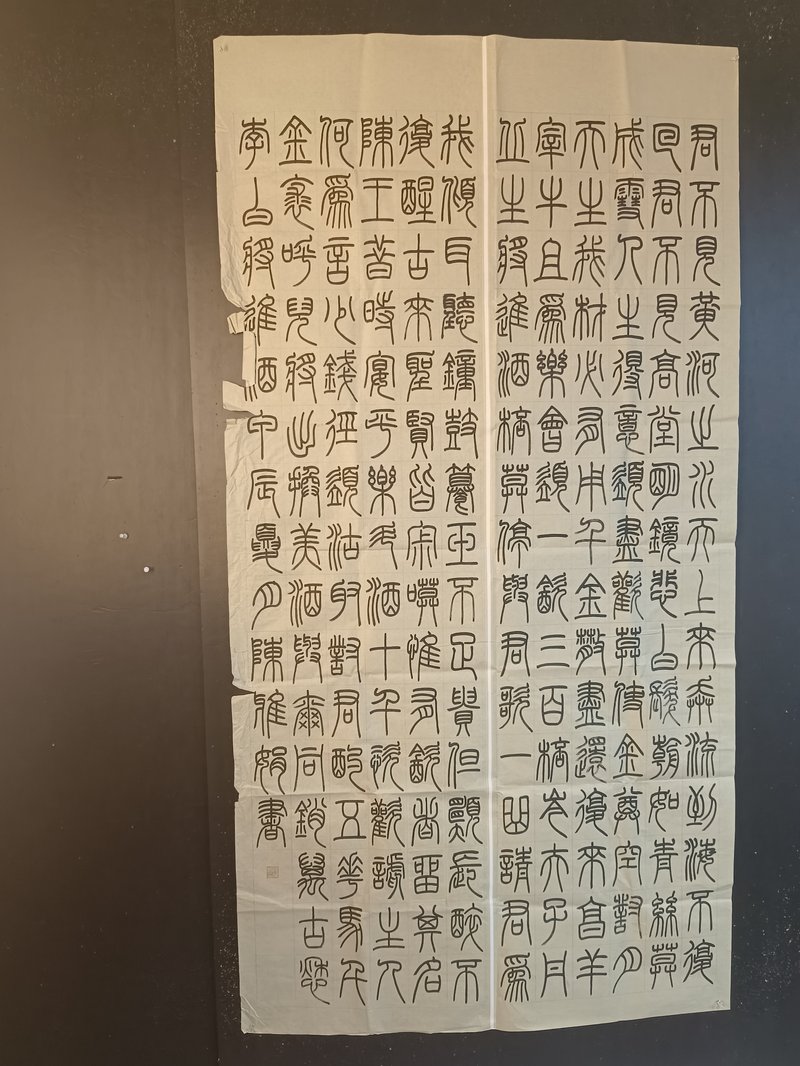 君不見黃河之水天上來奔流到海不復
回君不見高堂明鏡悲白髮朝如青絲莫
成雪人生得意須盡歡莫使金尊空對月
天生我材必有用千金散盡還復來烹羊
宰牛且爲樂會須一飲三百杯岑夫子丹
丘生將進酒杯莫停與君歌一曲請君爲
我傾耳聽鐘鼓饌玉不足貴但願長醉不
復醒古來聖賢皆寂寞惟有飲者留其名
陳王昔時宴平樂斗酒十千恣歡謔主人
何爲言少錢徑須沽取對君酌五花馬千
金裘呼兒將出換美酒與爾同銷萬古愁
李白將進酒甲辰夏月陳雅娟書